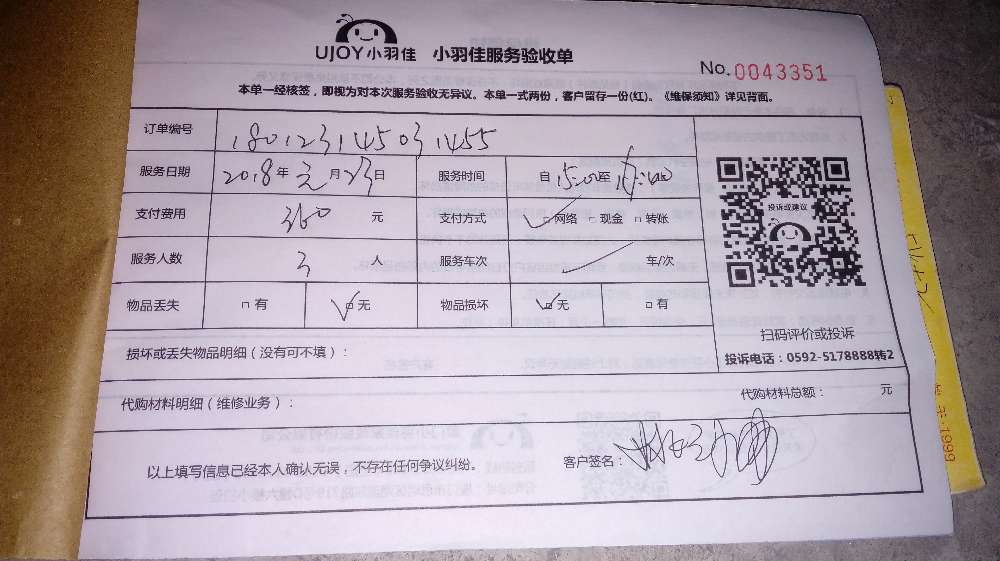 UJOY小羽佳 小羽佳服务验收单
No. 0043351
本单一经核签，即视为对本次服务验收无异议。本单一式两份，客户留存一份(红)。《维保须知》详见背面。
订单编号 180123145031455
服务日期 2018年 元 月 23 日 服务时间 自 15:00 至
支付费用 360 元 支付方式 ☑网络 □现金 □转账
服务人数 3 人 服务车次 车/次
物品丢失 □有 ☑无 物品损坏 ☑无 □有
投诉或建议
扫码评价或投诉
投诉电话：0592-5178888转2
损坏或丢失物品明细（没有可不填）：
代购材料明细（维修业务）： 代购材料总额： 元
以上填写信息已经本人确认无误，不存在任何争议纠纷。 客户签名：